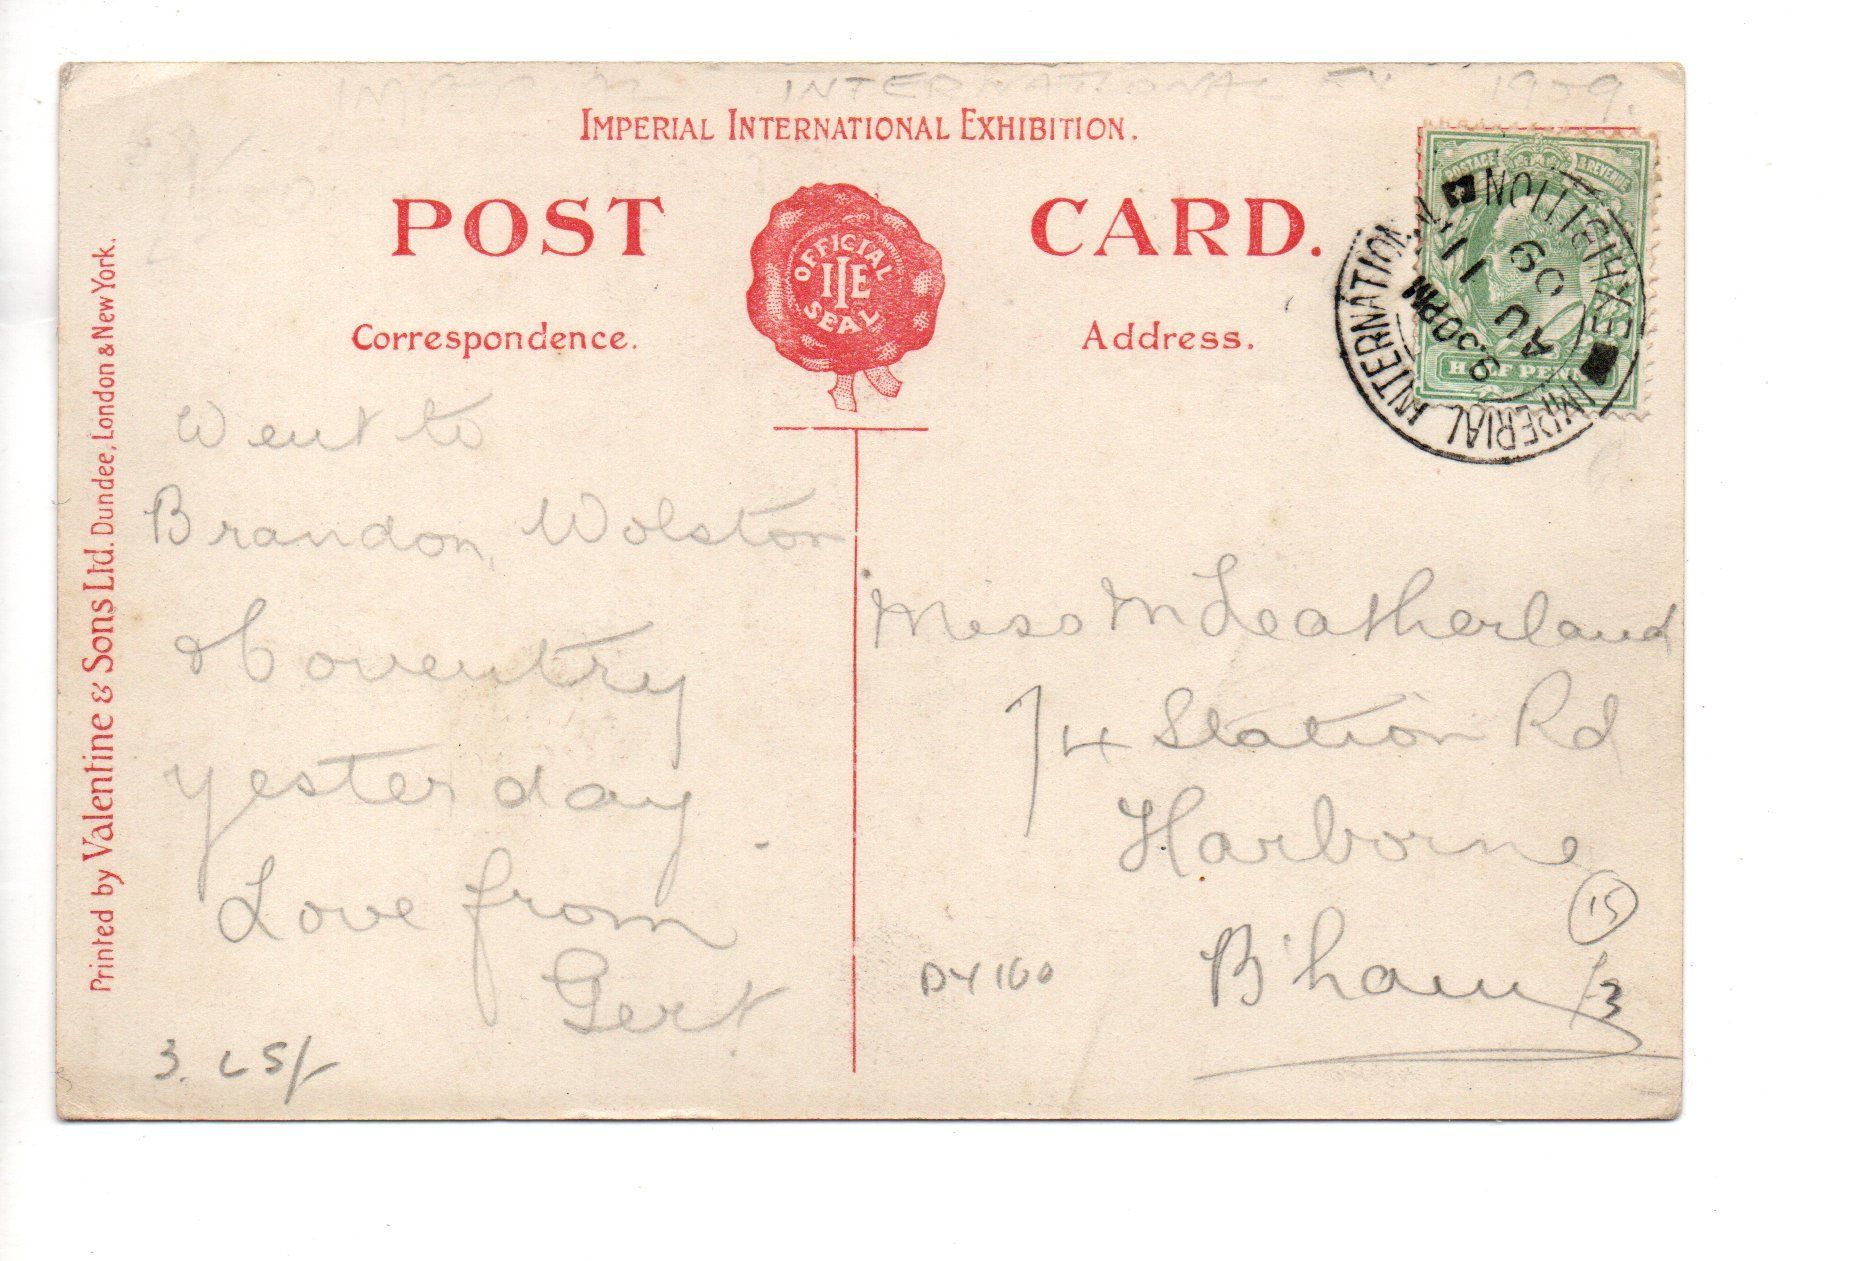 INTERNATIONAL EX 1909.
IMPERIAL INTERNATIONAL EXHIBITION.
POST CARD.
OFFICIAL
IIE
SEAL
Correspondence.
Address.
POSTAGE & REVENUE
HALF PENNY
IMPERIAL INTERNATIONAL EXHIBITION
8.30PM
11 AU
09
Went to
Brandon, Wolston
& Coventry
yesterday.
Love from
Gert
Miss M Leatherland
74 Station Rd
Harborne
B'ham
15
/3
DY 160
3. L S/-
Printed by Valentine & Sons Ltd. Dundee, London & New York.